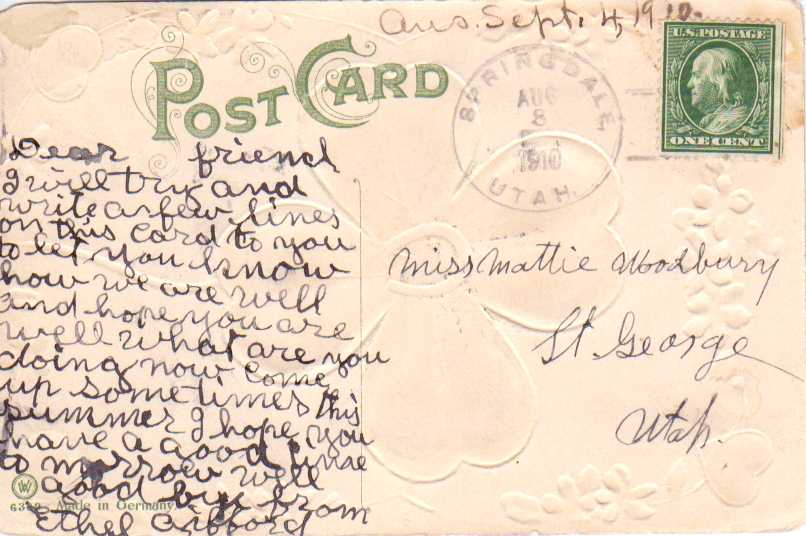 Ans. Sept. 4, 1910.
POST CARD
SPRINGDALE,
AUG
8
1910
UTAH.
U.S. POSTAGE
ONE CENT
Dear friend
I will try and
write a few lines
on this card to you
to let you know
how we are well
and hope you are
well what are you
doing now come
up sometimes this
summer I hope you
have a good time
to morrow well
good bye from
Ethel
Made in Germany
Miss Mattie Woodbury
St. George
Utah.